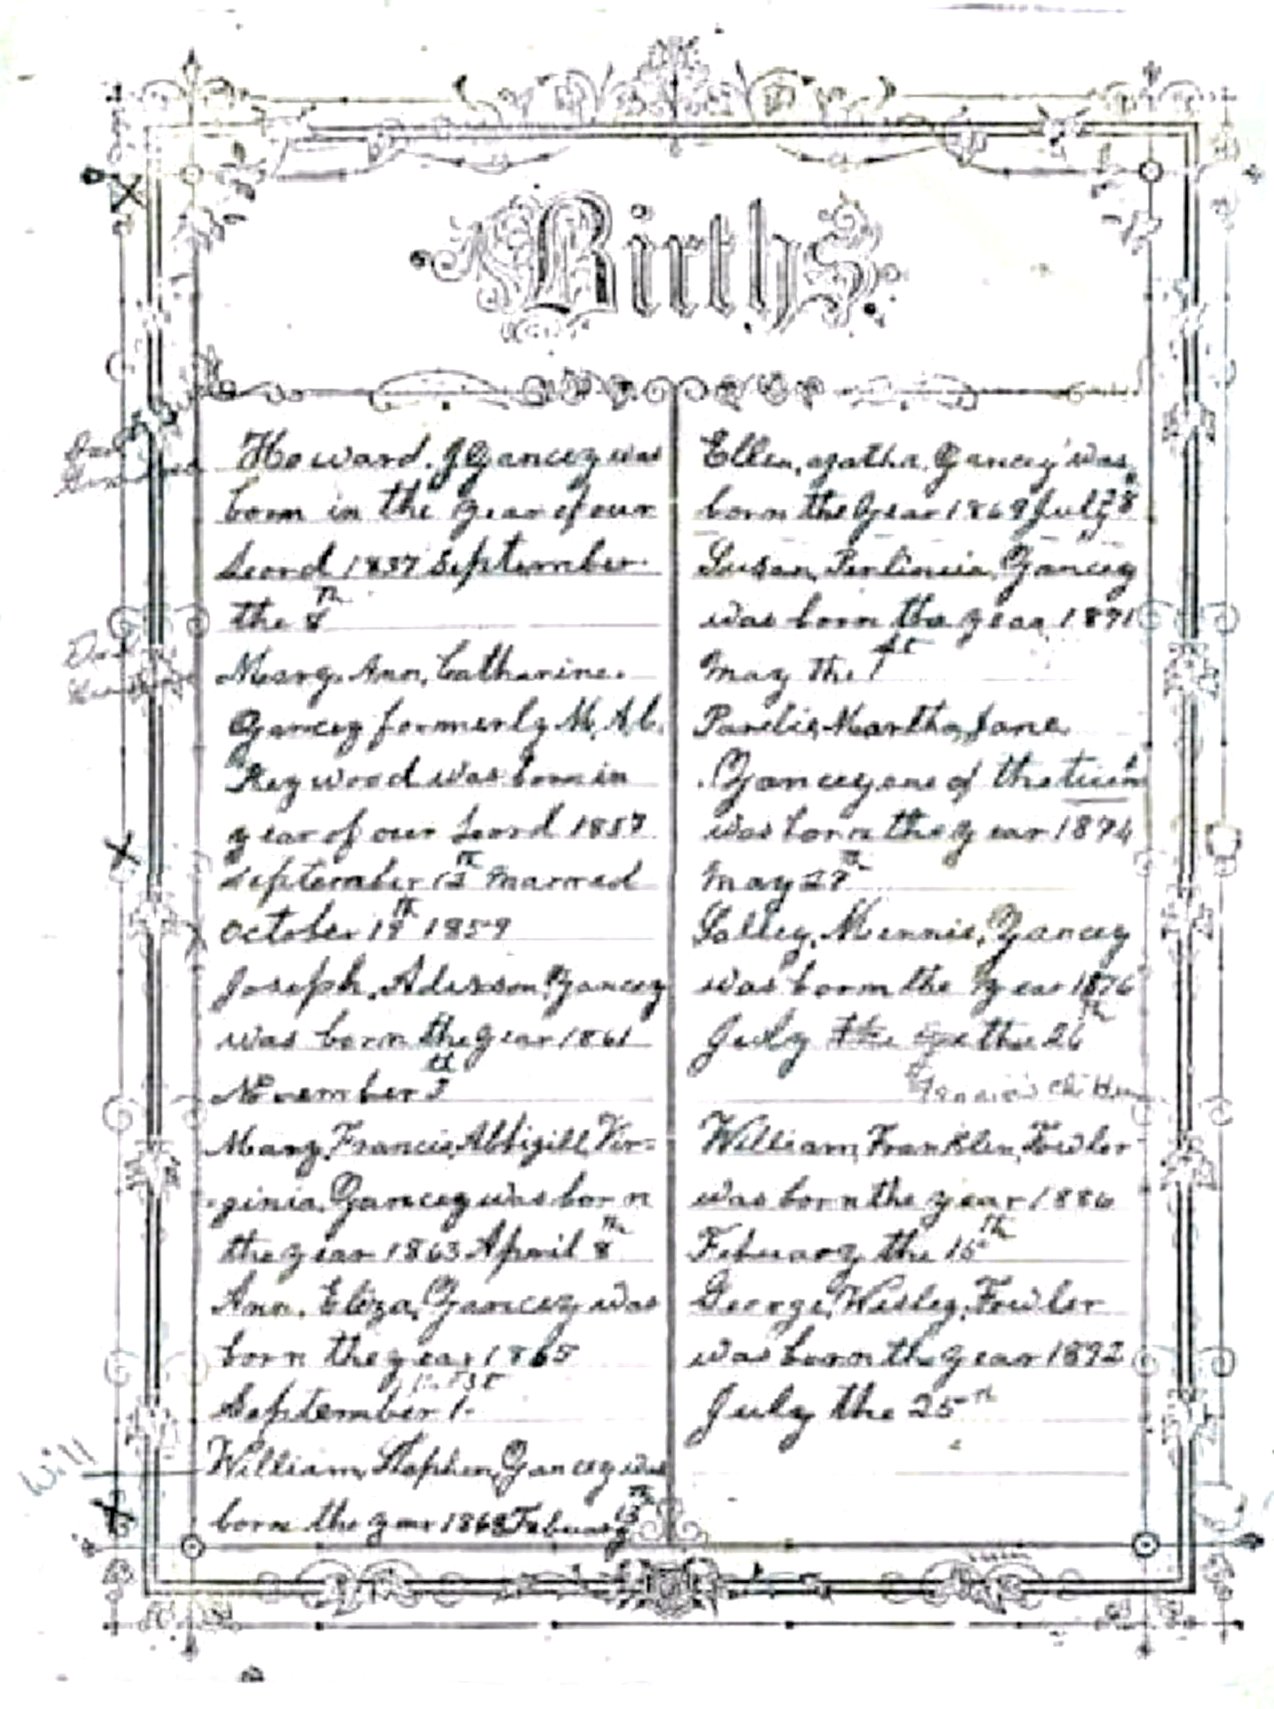 Births
Howard. J Yancey was
born in the year of our
Leord 1837 September
the 8th
Mary. Ann. Catharine.
Yancey formerly M. A. C.
Heywood was born in
year of our Leord 1837
September 12th Married
October 19th 1859
Joseph. Adisson Yancey
was born the year 1861
November 3d
Mary Francis Abbigill Vir=
ginia. Yancey was born
the year 1863 April 8th
Ann. Eliza, Yancey was
born the year 1865
September 1.
William Stephen Yancey was
born the year 1868 Febuary 13th
Ellen, agatha, Yancey was
born the year 1869 July 28
Susan, Perlinnia, Yancey
was born the year 1871
May the 1st
Martha Jane
Yancey one of the twin
was born the year 1874
May 27th
Salley, Minnie, Yancey
was born the year 1876
July the 26th
William, Franklin, Fowler
was born the year 1886
Febuary the 16th
George, Wesley, Fowler
was born the year 1892
July the 25th
Will